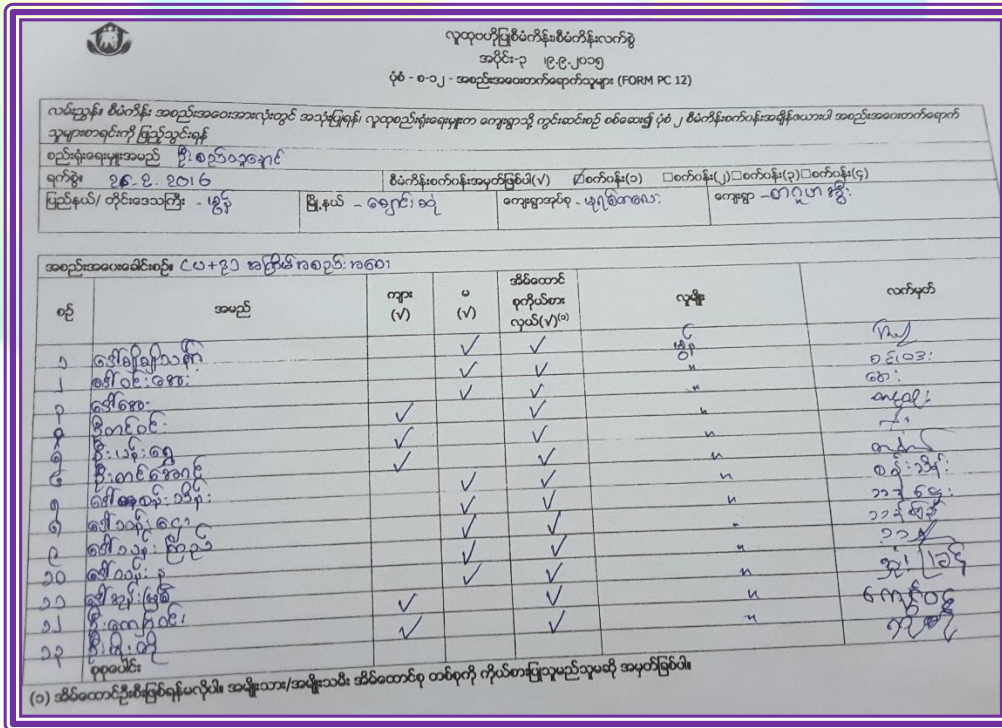 လူထုဗဟိုပြုစီမံကိန်းစီမံကိန်းလက်စွဲ
အပိုင်း-၃ ၊၉.၉.၂၀၁၅
ပုံစံ - စ-၁၂ - အစည်းအဝေးတက်ရောက်သူများ (FORM PC 12)
လမ်းညွှန်။ စီမံကိန်း အစည်းအဝေးအားလုံးတွင် အသုံးပြုရန်၊ လူထုစည်းရုံးရေးမှူးက ကျေးရွာသို့ ကွင်းဆင်းစဉ် စစ်ဆေး၍ ပုံစံ ၂ စီမံကိန်းစက်ဝန်းအချိန်ဇယားပါ အစည်းအဝေးတက်ရောက်
သူများစာရင်းကို ဖြည့်သွင်းရန်
စည်းရုံးရေးမှူးအမည် ဦးစည်သူနောင်
ရက်စွဲ။ 26.2.2016 စီမံကိန်းစက်ဝန်းအမှတ်ဖြစ်ပါ(√) ☑စက်ဝန်း(၁) ☐စက်ဝန်း(၂)☐စက်ဝန်း(၃)☐စက်ဝန်း(၄)
ပြည်နယ်/ တိုင်းဒေသကြီး - မွန် မြို့နယ် - ချောင်းဆုံ ကျေးရွာအုပ်စု - မုရစ်ကလေး ကျေးရွာ -
အစည်းအဝေးခေါင်းစဉ်။ အကြိမ်အစည်းအဝေး
စဉ် အမည် ကျား (√) မ (√) အိမ်ထောင်စုကိုယ်စားလှယ်(√)⁽⁹⁾ လူမျိုး လက်မှတ်
၁ ဒေါ်ချိုချိုသန်း √ √ မွန်
၂ ဒေါ်ဝင်းအေး √ √ "
၃ ဒေါ်အေး √ √ " အေး
၄ ဦးတင်ဝင်း √ √ "
၅ ဦးပန်းရွှေ √ √ "
၆ ဦးတင်အောင် √ √ "
၇ ဒေါ်စန်းသိန်း √ √ " စန်းသိန်း
၈ ဒေါ်သန်းငွေ √ √ "
၉ ဒေါ်သန်းကြည် √ √ "
၁၀ ဒေါ်သန်းနု √ √ "
၁၁ ဒေါ်အုန်းမြင့် √ √ "
၁၂ ဦးကျော်ဝင်း √ √ " ကျော်ဝင်း
၁၃ √ √ "
စုစုပေါင်း
(၁) အိမ်ထောင်ဦးစီးဖြစ်ရန်မလိုပါ။ အမျိုးသား/အမျိုးသမီး အိမ်ထောင်စု တစ်စုကို ကိုယ်စားပြုသူမည်သူမဆို အမှတ်ခြစ်ပါ။